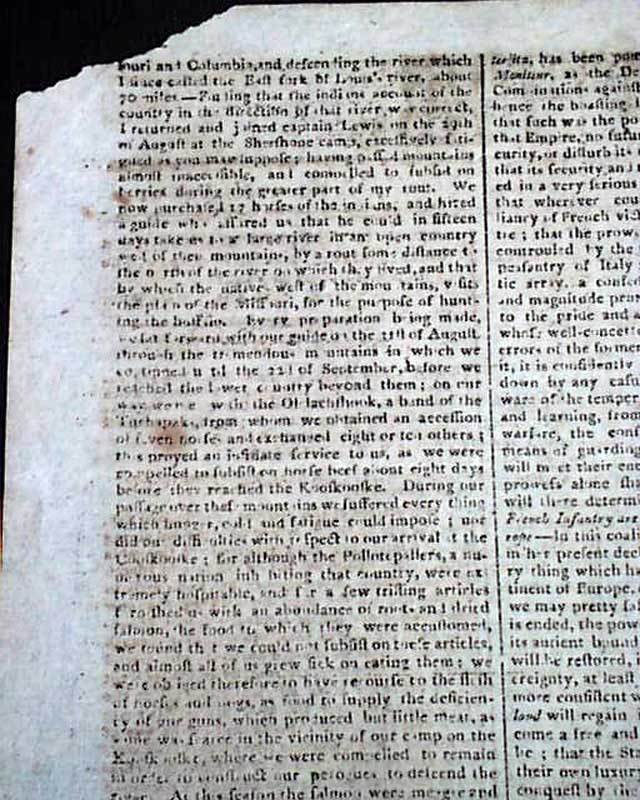 souri and Columbia, and descending the river which
I since called the East fork of Louis's river, about
70 miles.—Finding that the indians account of the
country in the direction of that river was correct,
I returned and joined captain Lewis on the 29th
of August at the Shoshone camp, excessively fati-
gued as you may suppose; having passed mountains
almost inaccessible, and compelled to subsist on
berries during the greater part of my rout. We
now purchased 27 horses of the indians, and hired
a guide who assured us that he could in fifteen
days take us to a large river in an open country
west of these mountains, by a rout some distance to
the north of the river on which they lived, and that
by which the natives west of the mountains, visits
the plains of the Missouri, for the purpose of hunt-
ing the buffalo. Every preparation being made,
we set forward with our guide on the 31st of August
through the tremendous mountains in which we
continued until the 22d of September, before we
reached the lower country beyond them; on our
way we met with the Ollachshook, a band of the
Tuchapaks, from whom we obtained an accession
of seven horses and exchanged eight or ten others;
this proved an infinite service to us, as we were
compelled to subsist on horse beef about eight days
before they reached the Kooskooske. During our
passage over these mountains we suffered every thing
which hunger, cold and fatigue could impose; nor
did our difficulties with respect to our arrival at the
Kooskooske; for although the Pollotepallers, a nu-
merous nation inhabiting that country, were ex
tremely hospitable, and for a few trifling articles
furnished us with an abundance of roots and dried
salmon, the food to which they were accustomed,
we found that we could not subsist on these articles,
and almost all of us grew sick on eating them; we
were obliged therefore to have recourse to the flesh
of horses and dogs, as food to supply the deficien-
cy of our guns, which produced but little meat, as
game was scarce in the vicinity of our camp on the
Kooskooske, where we were compelled to remain
in order to construct our perogues to descend the
river. At this season the salmon were meagre and
has been
Moniteur, as the
against
hence the boasting
that such was the
that Empire, no
curity, or disturb its
that its security and
ed in a very serious
that wherever
liancy of French
tie; that the
controuled by the
peasantry of Italy
tic array, a
and magnitude
to the pride and
whose
errors of the former
it, it is confidently
down by any
ware of the
and learning, from
warfare, the
means of guarding
will meet their
prowess alone
will there
French Infantry are
rope—In this
in her present
ry thing which
tinent of Europe,
we may pretty
is ended, the
its antient
will be restored,
creignty, at least
more consistent
land will regain
come a free and
be; that the
their own
conquest by the